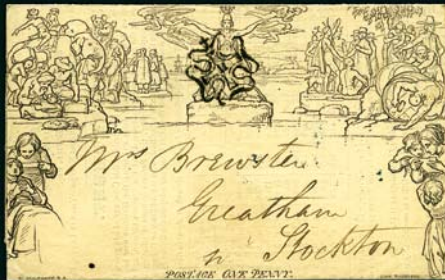 Mrs Brewster
Greatham
nr Stockton
POSTAGE ONE PENNY.